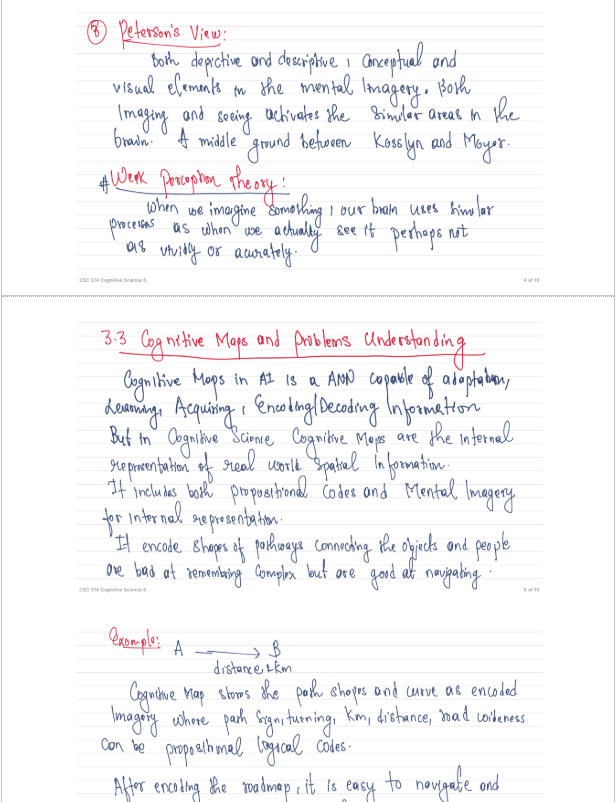 ③ Peterson's View:
Both depictive and descriptive, Conceptual and
visual elements in the mental Imagery. Both
Imaging and seeing activates the similar areas in the
brain. A middle ground between Kosslyn and Moyer.
# Weak Perception theory:
When we imagine something, our brain uses similar
processes as when we actually see it perhaps not
as vividly or acurately.
CSC 374 Cognitive Science 5
4 of 10
3.3 Cognitive Maps and problems Understanding
Cognitive Maps in AI is a ANN capable of adaptation,
Learning, Acquiring, Encoding/Decoding Information
But in Cognitive Science Cognitive Maps are the internal
representation of real world spatial Information.
It includes both propositional codes and Mental Imagery
for internal representation.
It encode shapes of pathways connecting the objects and people
are bad at remembring complex but are good at navigating.
CSC 374 Cognitive Science 5
5 of 10
Example: A → B
distance 2km
Cognitive Map stores the path shapes and curve as encoded
Imagery where path sign, turning, Km, distance, road wideness
can be propositional logical codes.
After encoding the roadmap, it is easy to navigate and